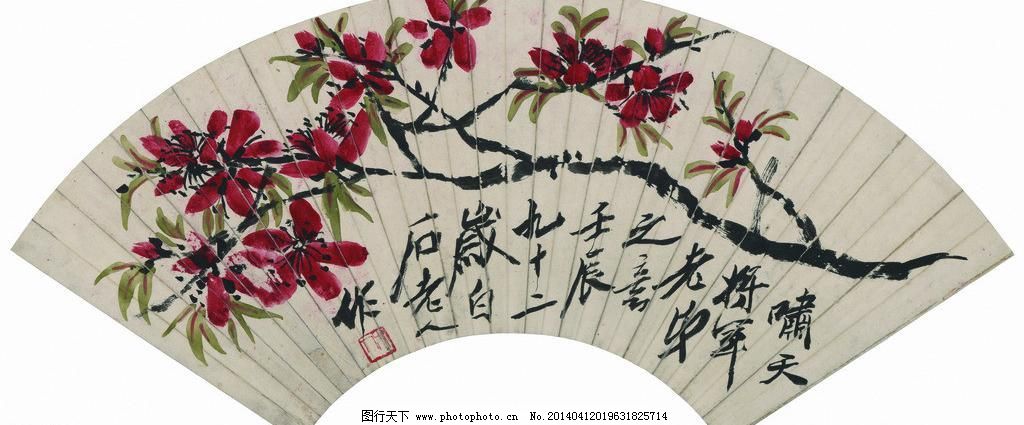 嘯天
將軍
老
之
壬辰
九十二
歲白
石老人
作
图行天下 www.photophoto.cn No.20140412019631825714